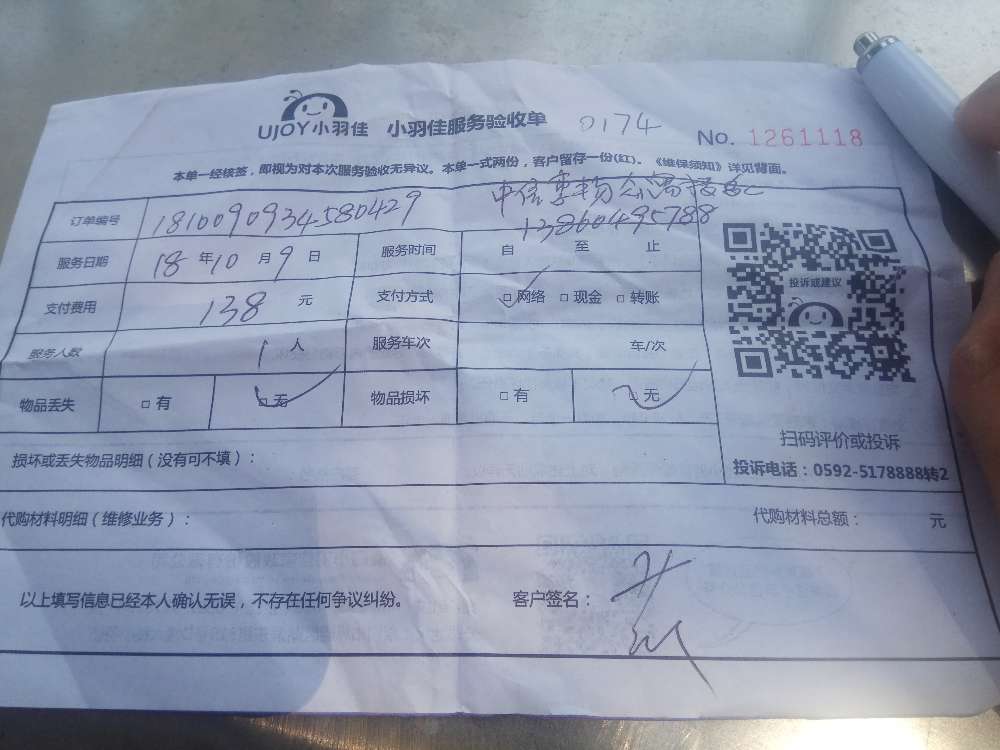 UJOY小羽佳 小羽佳服务验收单 0174 No. 1261118
本单一经核签，即视为对本次服务验收无异议。本单一式两份，客户留存一份(红)。《维保须知》详见背面。
订单编号 1810090934580429
13860495788
服务日期 18 年 10 月 9 日 服务时间 自 至 止
支付费用 138 元 支付方式 □网络 □现金 □转账
服务人数 1 人 服务车次 车/次
物品丢失 □有 □无 物品损坏 □有 □无
投诉或建议
扫码评价或投诉
投诉电话：0592-5178888转2
损坏或丢失物品明细（没有可不填）：
代购材料明细（维修业务）： 代购材料总额： 元
以上填写信息已经本人确认无误，不存在任何争议纠纷。 客户签名：